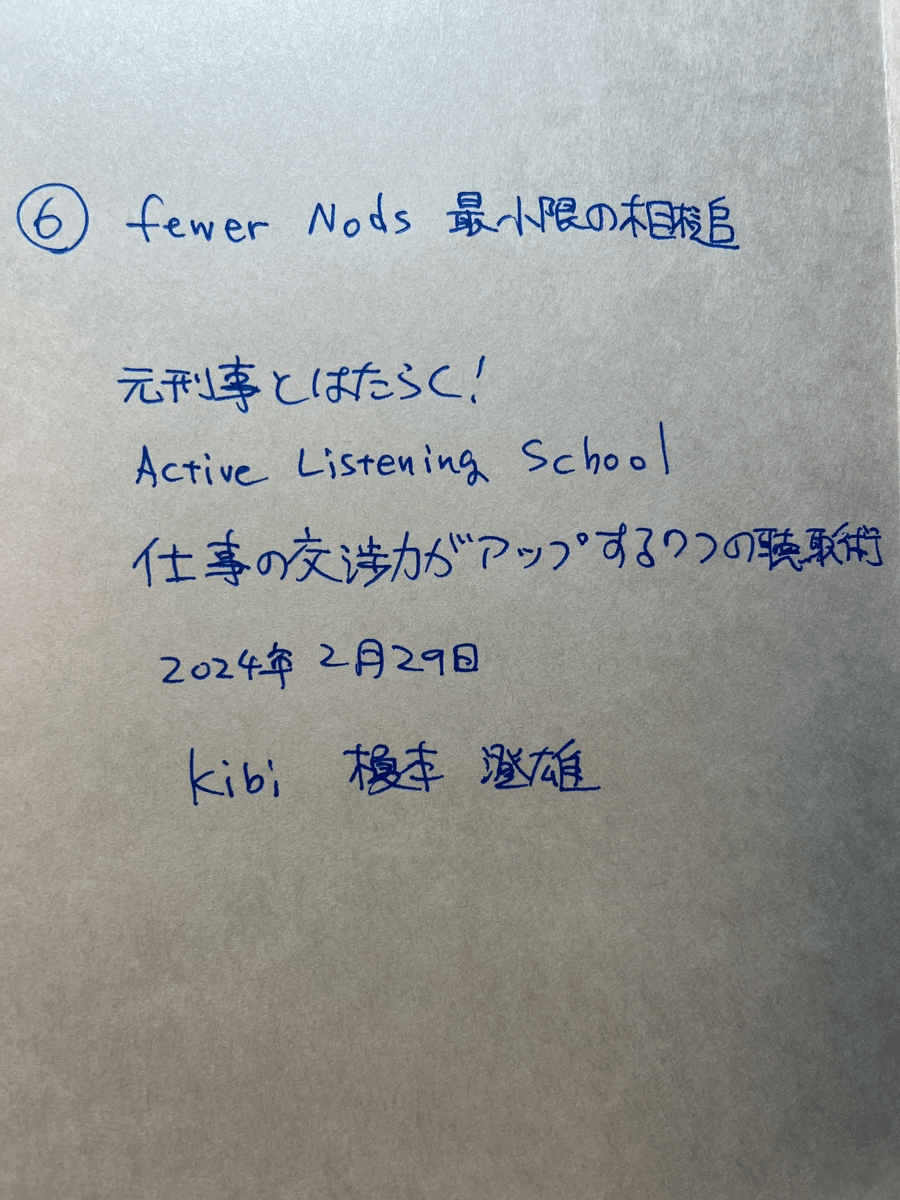 ⑥ fewer Nods 最小限の相槌
元刑事とはたらく!
Active Listening School
仕事の交渉力がアップする7つの聴取術
2024年2月29日
kibi 榎本 澄雄